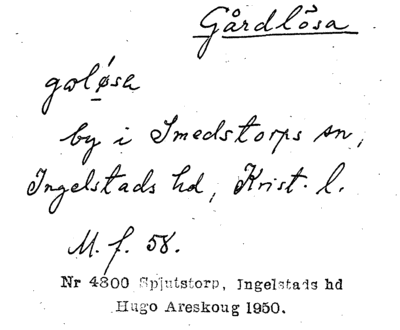 Gårdlösa
gɑlǿsɑ
by i Smedstorps sn,
Ingelstads hd, Krist. l.
M. f. 58.
Nr 4800 Spjutstorp, Ingelstads hd
Hugo Areskoug 1950.